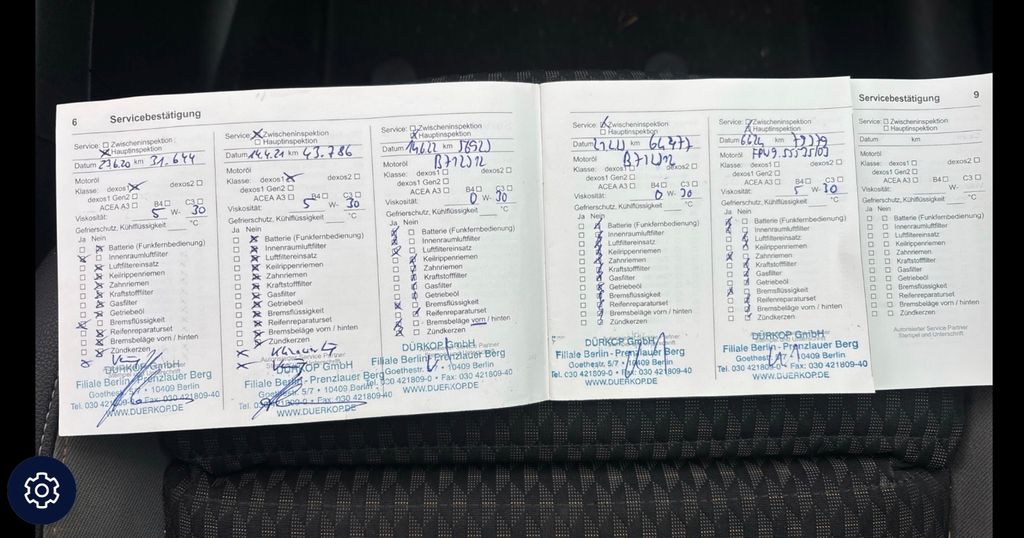 6 Servicebestätigung
Service: ☐ Zwischeninspektion
☒ Hauptinspektion
Datum 23.6.20 km 31.644
Motoröl
Klasse: dexos1 ☒ dexos2 ☐
dexos1 Gen2 ☐
ACEA A3 ☐ B4 ☐ C3 ☐
Viskosität: 5 W- 30
Gefrierschutz, Kühlflüssigkeit °C
Ja Nein
Batterie (Funkfernbedienung)
Innenraumluftfilter
Luftfiltereinsatz
Keilrippenriemen
Zahnriemen
Kraftstofffilter
Gasfilter
Getriebeöl
Bremsflüssigkeit
Reifenreparaturset
Bremsbeläge vorn / hinten
Zündkerzen
DÜRKOP GmbH
Filiale Berlin - Prenzlauer Berg
Goethestr. 5/7 • 10409 Berlin
Tel. 030 421809-0 • Fax: 030 421809-40
WWW.DUERKOP.DE
Service: ☒ Zwischeninspektion
☐ Hauptinspektion
Datum 14.4.21 km 43.786
Motoröl
Klasse: dexos1 ☒ dexos2 ☐
dexos1 Gen2 ☐
ACEA A3 ☐ B4 ☐ C3 ☐
Viskosität: 5 W- 30
Gefrierschutz, Kühlflüssigkeit °C
Ja Nein
Batterie (Funkfernbedienung)
Innenraumluftfilter
Luftfiltereinsatz
Keilrippenriemen
Zahnriemen
Kraftstofffilter
Gasfilter
Getriebeöl
Bremsflüssigkeit
Reifenreparaturset
Bremsbeläge vorn / hinten
Zündkerzen
DÜRKOP GmbH
Filiale Berlin - Prenzlauer Berg
Goethestr. 5/7 • 10409 Berlin
Tel. 030 421809-0 • Fax: 030 421809-40
WWW.DUERKOP.DE
Service: ☐ Zwischeninspektion
☒ Hauptinspektion
Datum km
Motoröl
Klasse: dexos1 ☐ dexos2 ☐
dexos1 Gen2 ☐
ACEA A3 ☐ B4 ☐ C3 ☐
Viskosität: 0 W- 30
Gefrierschutz, Kühlflüssigkeit °C
Ja Nein
Batterie (Funkfernbedienung)
Innenraumluftfilter
Luftfiltereinsatz
Keilrippenriemen
Zahnriemen
Kraftstofffilter
Gasfilter
Getriebeöl
Bremsflüssigkeit
Reifenreparaturset
Bremsbeläge vorn / hinten
Zündkerzen
DÜRKOP GmbH
Filiale Berlin - Prenzlauer Berg
Goethestr. 5/7 • 10409 Berlin
Tel. 030 421809-0 • Fax: 030 421809-40
WWW.DUERKOP.DE
Service: ☒ Zwischeninspektion
☐ Hauptinspektion
Datum km 64477
Motoröl
Klasse: dexos1 ☐ dexos2 ☐
dexos1 Gen2 ☐
ACEA A3 ☐ B4 ☐ C3 ☐
Viskosität: 0 W- 30
Gefrierschutz, Kühlflüssigkeit °C
Ja Nein
Batterie (Funkfernbedienung)
Innenraumluftfilter
Luftfiltereinsatz
Keilrippenriemen
Zahnriemen
Kraftstofffilter
Gasfilter
Getriebeöl
Bremsflüssigkeit
Reifenreparaturset
Bremsbeläge vorn / hinten
Zündkerzen
DÜRKOP GmbH
Filiale Berlin - Prenzlauer Berg
Goethestr. 5/7 • 10409 Berlin
Tel. 030 421809-0 • Fax: 030 421809-40
WWW.DUERKOP.DE
Service: ☐ Zwischeninspektion
☒ Hauptinspektion
Datum km
Motoröl
Klasse: dexos1 ☐ dexos2 ☐
dexos1 Gen2 ☐
ACEA A3 ☐ B4 ☐ C3 ☐
Viskosität: 5 W- 30
Gefrierschutz, Kühlflüssigkeit °C
Ja Nein
Batterie (Funkfernbedienung)
Innenraumluftfilter
Luftfiltereinsatz
Keilrippenriemen
Zahnriemen
Kraftstofffilter
Gasfilter
Getriebeöl
Bremsflüssigkeit
Reifenreparaturset
Bremsbeläge vorn / hinten
Zündkerzen
DÜRKOP GmbH
Filiale Berlin - Prenzlauer Berg
Goethestr. 5/7 • 10409 Berlin
Tel. 030 421809-0 • Fax: 030 421809-40
WWW.DUERKOP.DE
Servicebestätigung 9
Service: ☐ Zwischeninspektion
☐ Hauptinspektion
Datum km
Motoröl
Klasse: dexos1 ☐ dexos2 ☐
dexos1 Gen2 ☐
ACEA A3 ☐ B4 ☐ C3 ☐
Viskosität: W-
Gefrierschutz, Kühlflüssigkeit °C
Ja Nein
Batterie (Funkfernbedienung)
Innenraumluftfilter
Luftfiltereinsatz
Keilrippenriemen
Zahnriemen
Kraftstofffilter
Gasfilter
Getriebeöl
Bremsflüssigkeit
Reifenreparaturset
Bremsbeläge vorn / hinten
Zündkerzen
Autorisierter Service Partner
Stempel und Unterschrift